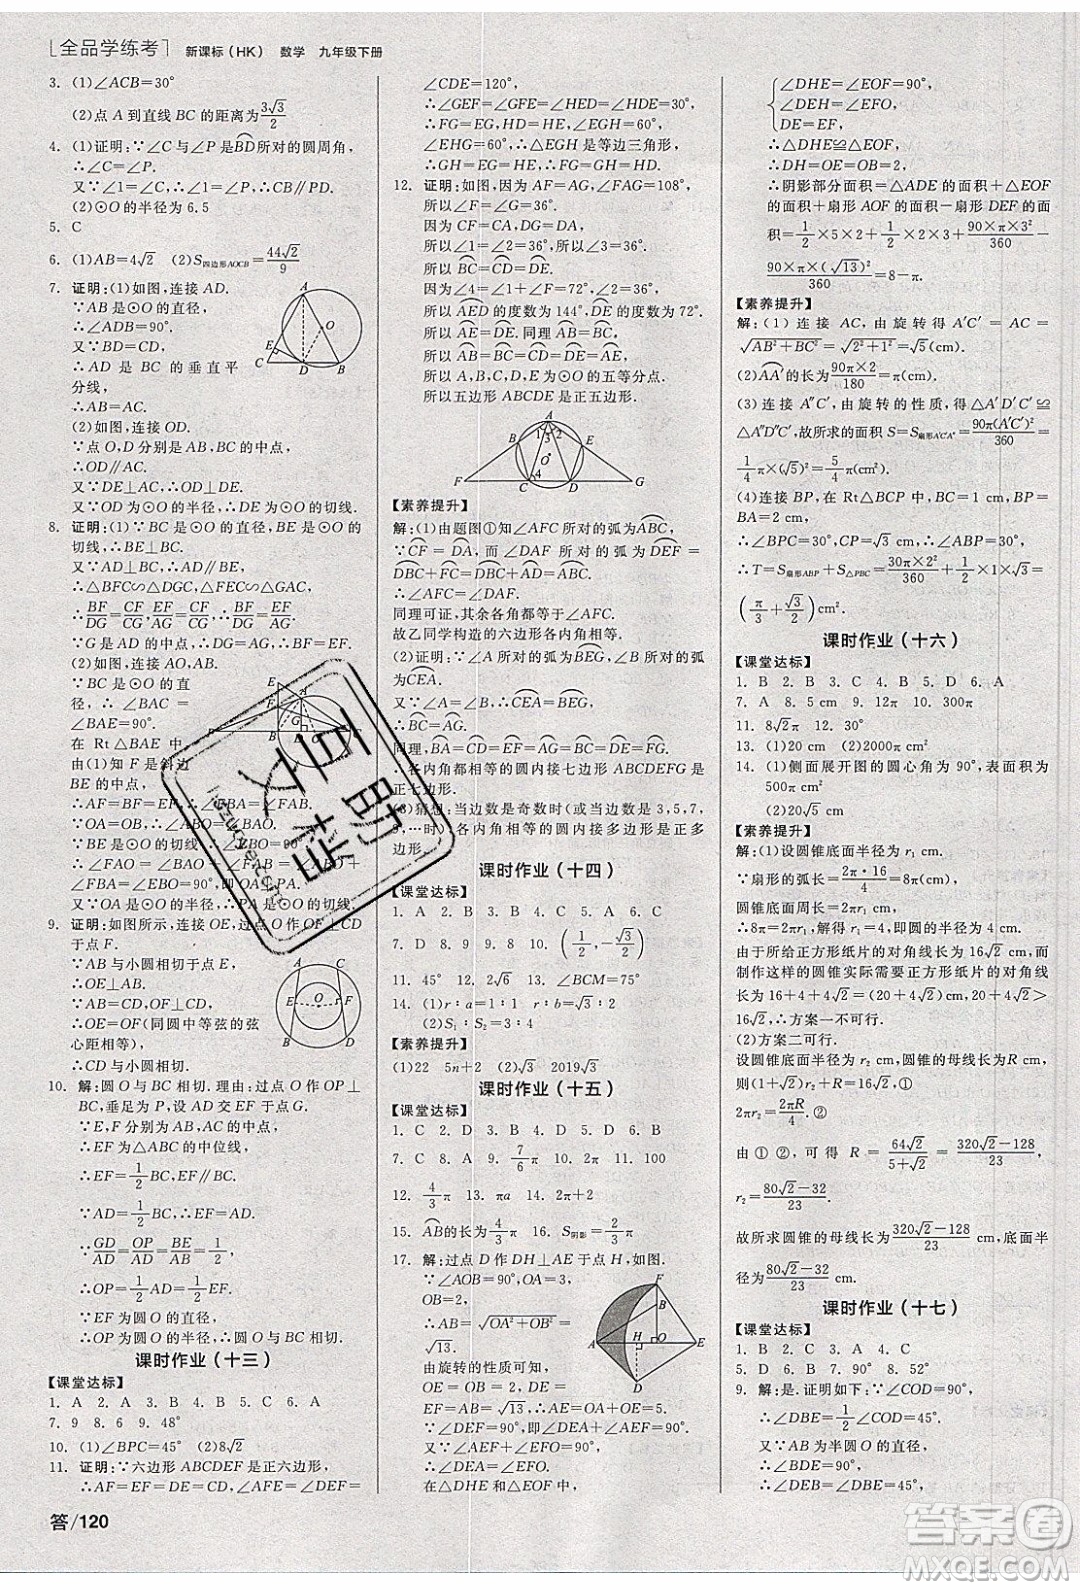 全品学练考 新课标(HK) 数学 九年级下册
3. (1)∠ACB=30°
(2)点 A 到直线 BC 的距离为3√3/2
4. (1)证明:∵∠C与∠P是BD所对的圆周角,
∴∠C=∠P.
又∵∠1=∠C,∴∠1=∠P,∴CB∥PD.
(2)⊙O 的半径为 6.5
5. C
6. (1)AB=4√2 (2)S四边形AOCB=44√2/9
7. 证明:(1)如图,连接 AD.
∵AB 是⊙O 的直径,
∴∠ADB=90°.
又∵BD=CD,
∴AD 是 BC 的垂直平
分线,
∴AB=AC.
(2)如图,连接 OD.
∵点 O,D 分别是 AB,BC 的中点,
∴OD∥AC.
又∵DE⊥AC,
∴DE⊥OD.
又∵OD 为⊙O 的半径,∴DE 为⊙O 的切线.
8. 证明:(1)∵BC 是⊙O 的直径,BE 是⊙O 的
切线,∴EB⊥BC.
又∵AD⊥BC,∴AD∥BE,
∴△BFC∽△DGC,△FEC∽△GAC,
∴BF/DG=CF/CG,EF/AG=CF/CG,∴BF/DG=EF/AG.
∵G 是 AD 的中点,∴DG=AG,∴BF=EF.
(2)连接 AO,AB.
∵BC 是⊙O 的直
径,∴∠BAC=
∠BAE=90°.
在 Rt△BAE 中,
由(1)知 F 是斜边
BE 的中点,
∴AF=BF=EF,∴∠FBA=∠FAB.
∵OA=OB,∴∠ABO=∠BAO.
∵BE 是⊙O 的切线,∴∠EBO=90°,
∴∠FAO=∠FAB+∠BAO=∠FBA+
∠ABO=∠EBO=90°,∴PA 是⊙O 的切线.
9. 证明:如图所示,连接 OE,过点 O 作 OF⊥CD
于点 F.
∵AB 与小圆相切于点 E,
∴OE⊥AB.
∵AB=CD,
∴OE=OF(同圆中等弦的弦
心距相等),
∴CD 与小圆相切.
10. 解:圆 O 与 BC 相切. 理由:过点 O 作 OP⊥
BC,垂足为 P,设 AD 交 EF 于点 G.
∵E,F 分别为 AB,AC 的中点,
∴EF 为△ABC 的中位线,
∴EF=1/2BC.
∵AD=1/2BC,∴EF=AD.
∵GD/AD=OP/AD=BE/AB=1/2,
∴OP=1/2AD=1/2EF.
∵EF 为圆 O 的直径,
∴OP 为圆 O 的半径,∴圆 O 与 BC 相切.
课时作业(十三)
【课堂达标】
1. A 2. A 3. B 4. B 5. A 6. B
7. 9 8. 6 9. 48°
10. (1)∠BPC=45° (2)8√2
11. 证明:∵六边形 ABCDEF 是正六边形,
∴AF=EF=ED=CD,∠AFE=∠DEF=
答/120
∠CDE=120°,
∴∠GEF=∠GFE=∠HED=∠HDE=30°,
∴FG=EG,EH=HD,∠EGH=60°,
∠EHG=60°,∴△EGH 是等边三角形,
∴GH=EG=EH,∴FG=GH=HD.
12. 证明:如图,因为 AF=AG,∠FAG=108°,
所以∠F=∠G=36°.
因为 CF=CA,DG=DA,
所以∠1=∠F=36°,∠2=∠G=36°,
所以∠3=108°-∠1-∠2=36°,
所以BC=CD=DE.
因为∠4=∠1+∠F=72°,∠2=36°,
所以AED的度数为 144°,DE的度数为 72°,
所以AE=DE. 同理AB=BC,
所以AB=BC=CD=DE=AE,
所以 A,B,C,D,E 是⊙O 的五等分点,
所以五边形 ABCDE 是正五边形.
【素养提升】
解:(1)由题图①知∠AFC 所对的弧为ABC,
∵CF=DA,而∠DAF 所对的弧为DEF=
DBC+CF=ABC+DA=ABC,
∴∠AFC=∠DAF.
同理可证,其余各角都等于∠AFC.
故乙同学构造的六边形各内角相等.
(2)证明:∵∠A 所对的弧为BEG,∠B 所对的
弧为CEA.
又∵∠A=∠B,∴CEA=BEG,
∴BC=AG.
同理,BA=CD=EF=AG=BC=DE=FG.
∴各内角都相等的圆内接七边形 ABCDEFG 是
正七边形.
(3)猜想:当边数是奇数时(或当边数是 3,5,7,
9,…时),各内角相等的圆内接多边形是正多
边形.
课时作业(十四)
【课堂达标】
1. A 2. B 3. A 4. C 5. A 6. C
7. D 8. 8 9. 9 10. (1/2,-√3/2)
11. 45° 12. 2√6 13. ∠BCM=75°
14. (1)r∶a=1∶1 r∶b=√3∶2
(2)S₁∶S₂=3∶4
【素养提升】
(1)22 5n+2 (2)√3 2019√3
课时作业(十五)
【课堂达标】
1. C 2. D 3. B 4. D 5. D 6. B
7. C 8. A 9. 7/6π 10. 2π 11. 100
12. 4/3π 13. πa 14. 2π+2
15. AB的长为4/3π 16. S阴影=2/3π
17. 解:过点 D 作 DH⊥AE 于点 H,如图.
∵∠AOB=90°,OA=3,
OB=2,
∴AB=√OA²+OB²=
√13.
由旋转的性质可知,
OE=OB=2,DE=
EF=AB=√13,
∵∠DEF=90°,即∠DEA+∠AEF=90°,
又∠AEF+∠EFO=90°,
∴∠DEA=∠EFO.
∠DHE=∠EOF=90°,
∠DEH=∠EFO,
DE=EF,
∴△DHE≌△EOF,
∴DH=OE=OB=2,
∴阴影部分面积=△ADE 的面积+△EOF
的面积+扇形 AOF 的面积-扇形 DEF 的面
积=1/2×5×2+1/2×2×3+90×π×3²/360-
90×π×(√13)²/360=8-π.
【素养提升】
解:(1)连接 AC,由旋转得 A′C′=AC=
√AB²+BC²=√2²+1²=√5(cm).
(2)AA′的长为90π×2/180=π(cm).
(3)连接 A″C′,由旋转的性质,得△A′D′C′≌
△A″D″C′,故所求的面积 S=S扇形A′C′A″=90π(A′C′)²/360
=1/4π×(√5)²=5/4π(cm²).
(4)连接 BP,在 Rt△BCP 中,BC=1 cm,
BP=BA=2 cm,
∴∠BPC=30°,CP=√3 cm,∴∠ABP=30°,
∴T=S扇形ABP+S△PBC=30π×2²/360+1/2×1×√3=
(π/3+√3/2)cm².
课时作业(十六)
【课堂达标】
1. B 2. B 3. C 4. B 5. D 6. A
7. A 8. 5 cm 9. 12π 10. 90°
11. 8√2π 12. 30°
13. (1)20 cm (2)2000π cm²
14. (1)侧面展开图的圆心角为 90°,面积为
500π cm²
(2)20√5 cm
【素养提升】
解:(1)设圆锥底面半径为 r₁ cm.
∵扇形的弧长=2π·16/4=8π(cm),
圆锥底面周长=2πr₁ cm,
∴8π=2πr₁,解得 r₁=4,即圆的半径为 4 cm.
由于所给正方形纸片的对角线长为 16√2 cm,而
制作这样的圆锥实际需要正方形纸片的对角线
长为 16+4+4√2=(20+4√2)cm,20+4√2>
16√2,∴方案一不可行.
(2)方案二可行.
设圆锥底面半径为 r₂ cm,圆锥的母线长为 R cm,
则(1+√2)r₂+R=16√2,①
2πr₂=2πR/4.②
由①②,可得 R=64√2/(5+√2)=(320√2-128)/23,
r₂=(80√2-32)/23.
故所求圆锥的母线长为(320√2-128)/23 cm,底面半
径为(80√2-32)/23 cm.
课时作业(十七)
【课堂达标】
1. B 2. C 3. C 4. A
5. D 6. B 7. 90° 8. 52°
9. 解:是. 证明如下:∵∠COD=90°,
∴∠DBE=1/2∠COD=45°.
又∵AB 为半圆 O 的直径,
∴∠ADB=90°,∴∠BDE=90°,
答案圈
MXQE.COM